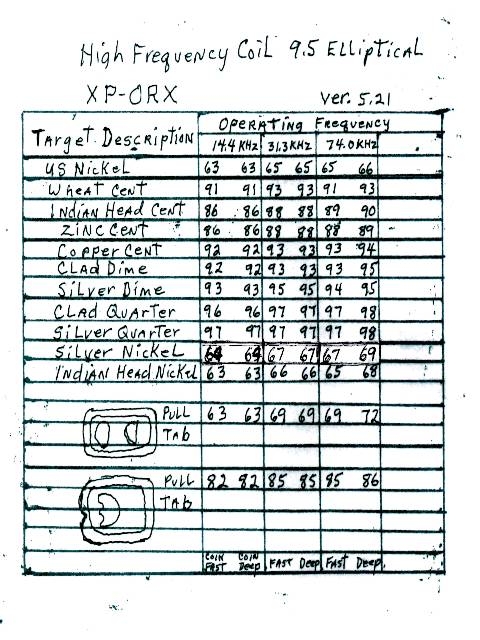 High Frequency Coil 9.5 Elliptical
XP-ORX ver. 5.21
Operating Frequency
Target Description 14.4 KHz 31.3KHz 74.0KHz
US Nickel 63 63 65 65 65 66
Wheat Cent 91 91 93 93 91 93
Indian Head Cent 86 86 88 88 89 90
Zinc Cent 86 86 88 88 88 89
Copper Cent 92 92 93 93 93 94
Clad Dime 92 92 93 93 93 95
Silver Dime 93 93 95 95 94 95
Clad Quarter 96 96 97 97 97 98
Silver Quarter 97 97 97 97 97 98
Silver Nickel 64 64 67 67 67 69
Indian Head Nickel 63 63 66 66 65 68
Pull 63 63 69 69 69 72
Tab
Pull 82 82 85 85 85 86
Tab
Coin Coin
Fast Deep Fast Deep Fast Deep